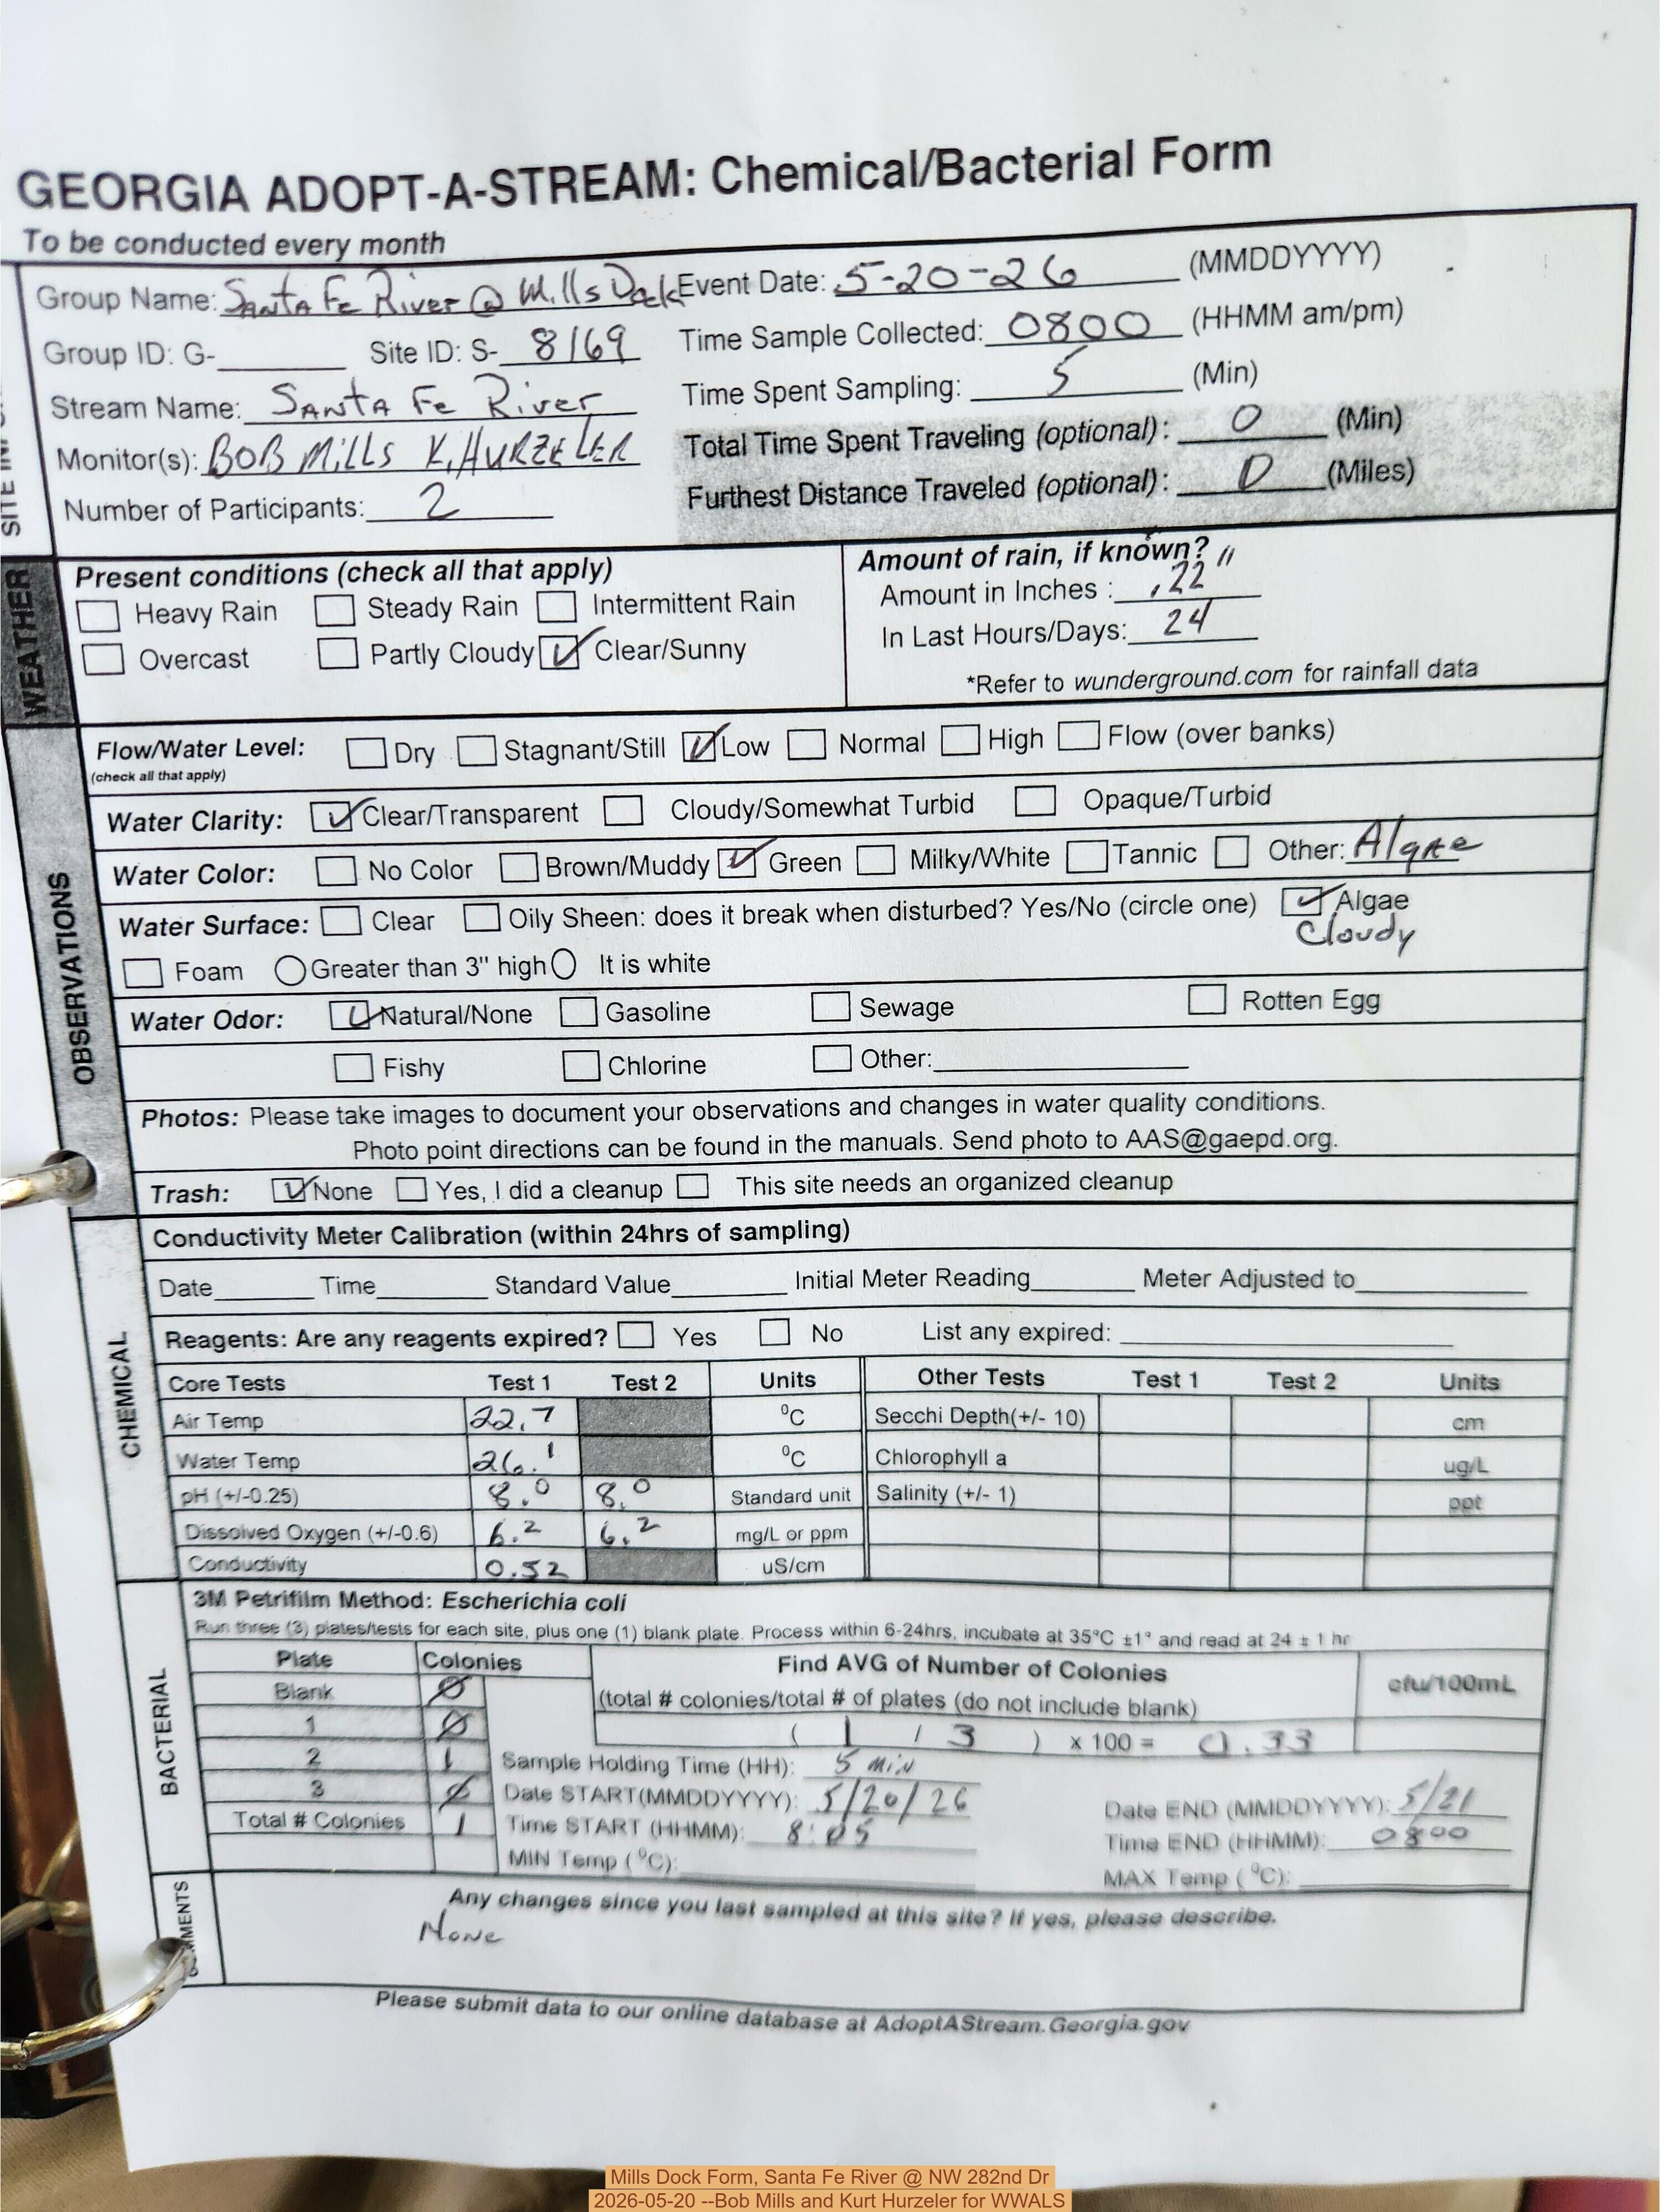 GEORGIA ADOPT-A-STREAM: Chemical/Bacterial Form
To be conducted every month
Group Name: Santa Fe River @ Mills Dock Event Date: 5-20-26 (MMDDYYYY)
Group ID: G- Site ID: S- 8169 Time Sample Collected: 0800 (HHMM am/pm)
Stream Name: Santa Fe River Time Spent Sampling: 5 (Min)
Monitor(s): BOB MILLS K. HURZELER Total Time Spent Traveling (optional): 0 (Min)
Number of Participants: 2 Furthest Distance Traveled (optional): 0 (Miles)
WEATHER
Present conditions (check all that apply) Amount of rain, if known?
Heavy Rain Steady Rain Intermittent Rain Amount in Inches : .22"
Overcast Partly Cloudy Clear/Sunny In Last Hours/Days: 24
*Refer to wunderground.com for rainfall data
OBSERVATIONS
Flow/Water Level: Dry Stagnant/Still Low Normal High Flow (over banks)
(check all that apply)
Water Clarity: Clear/Transparent Cloudy/Somewhat Turbid Opaque/Turbid
Water Color: No Color Brown/Muddy Green Milky/White Tannic Other: Algae
Water Surface: Clear Oily Sheen: does it break when disturbed? Yes/No (circle one) Algae
Cloudy
Foam Greater than 3" high It is white
Water Odor: Natural/None Gasoline Sewage Rotten Egg
Fishy Chlorine Other:
Photos: Please take images to document your observations and changes in water quality conditions.
Photo point directions can be found in the manuals. Send photo to AAS@gaepd.org.
Trash: None Yes, I did a cleanup This site needs an organized cleanup
CHEMICAL
Conductivity Meter Calibration (within 24hrs of sampling)
Date Time Standard Value Initial Meter Reading Meter Adjusted to
Reagents: Are any reagents expired? Yes No List any expired:
Core Tests Test 1 Test 2 Units Other Tests Test 1 Test 2 Units
Air Temp 22.7 °C Secchi Depth(+/- 10) cm
Water Temp 26.1 °C Chlorophyll a ug/L
pH (+/-0.25) 8.0 8.0 Standard unit Salinity (+/- 1) ppt
Dissolved Oxygen (+/-0.6) 6.2 6.2 mg/L or ppm
Conductivity 0.52 uS/cm
BACTERIAL
3M Petrifilm Method: Escherichia coli
Run three (3) plates/tests for each site, plus one (1) blank plate. Process within 6-24hrs, incubate at 35°C ±1° and read at 24 ± 1 hr
Plate Colonies Find AVG of Number of Colonies cfu/100mL
Blank Ø (total # colonies/total # of plates (do not include blank)
1 Ø ( 1 / 3 ) x 100 = 0.33
2 1 Sample Holding Time (HH): 5 Min
3 Ø Date START(MMDDYYYY): 5/20/26 Date END (MMDDYYYY): 5/21
Total # Colonies 1 Time START (HHMM): 8:05 Time END (HHMM): 0800
MIN Temp (°C): MAX Temp (°C):
Any changes since you last sampled at this site? If yes, please describe.
None
Please submit data to our online database at AdoptAStream.Georgia.gov
Mills Dock Form, Santa Fe River @ NW 282nd Dr
2026-05-20 --Bob Mills and Kurt Hurzeler for WWALS